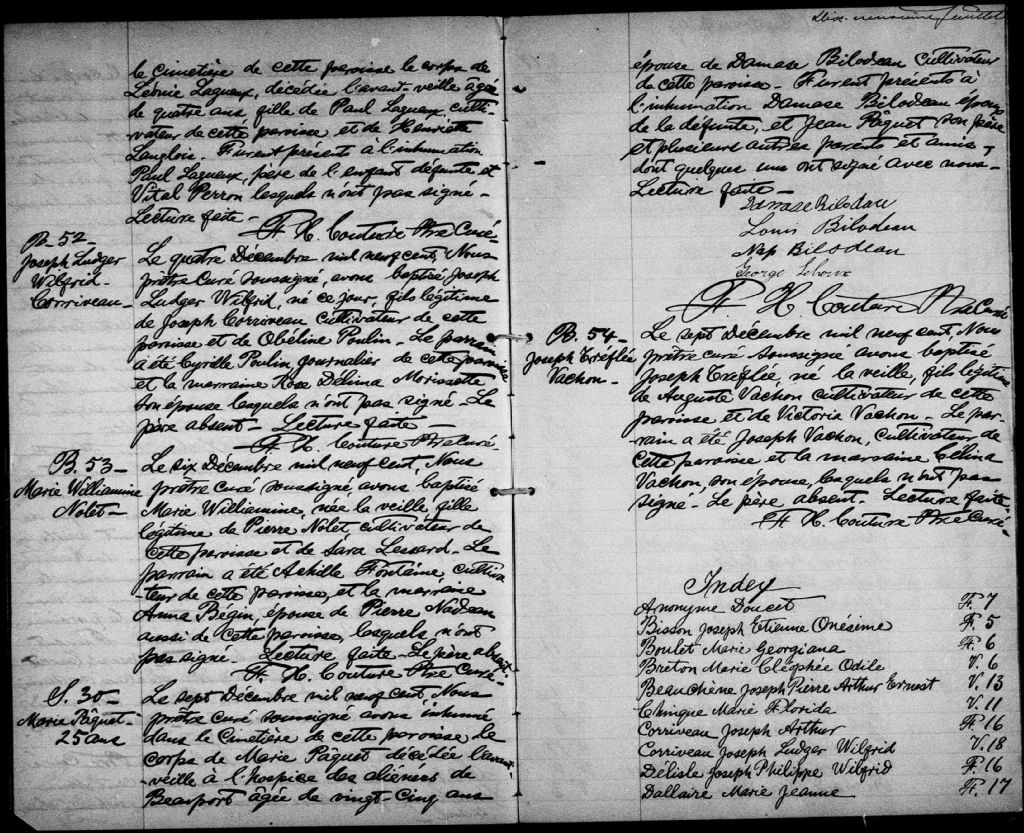 le cimetière de cette paroisse le corps de
Léonie Lagueux, décédée l'avant-veille âgée
de quatre ans, fille de Paul Lagueux, culti-
vateur de cette paroisse et de Henriette
Langlois. Furent présents à l'inhumation
Paul Lagueux, père de l'enfant défunte et
Vital Perron lesquels n'ont pas signé -
Lecture faite -
F. H. Couture Ptre Curé -
B - 52 -
Joseph Ludger
Wilfrid -
Corriveau -
Le quatre Décembre mil neuf cent, Nous
prêtre Curé soussigné, avons baptisé Joseph
Ludger Wilfrid, né ce jour, fils légitime
de Joseph Corriveau cultivateur de cette
paroisse et de Obéline Poulin - Le parrain
a été Cyrille Poulin, journalier de cette paroisse
et la marraine Rose Délima Morissette
son épouse lesquels n'ont pas signé - Le
père absent - Lecture faite -
F. H. Couture Ptre Curé.
B. 53 -
Marie Williamine
Nolet -
Le six Décembre mil neuf cent, Nous
prêtre curé soussigné avons baptisé
Marie Williamine, née la veille, fille
légitime de Pierre Nolet cultivateur de
cette paroisse et de Sara Lessard - Le
parrain a été Achille Fontaine cultiva-
teur de cette paroisse, et la marraine
Anna Bégin, épouse de Pierre Nadeau
aussi de cette paroisse, lesquels n'ont
pas signé - Lecture faite - Le père absent -
F. H. Couture Ptre Curé -
S. 30 -
Marie Pâquet -
25 ans
Le sept Décembre mil neuf cent, Nous
prêtre curé soussigné avons inhumé
dans le Cimetière de cette paroisse le
corps de Marie Pâquet décédée l'avant-
veille à l'hospice des aliénés de
Beauport âgée de vingt-cinq ans
Dix-neuvième feuillet
épouse de Damase Bilodeau Cultivateur
de cette paroisse - Furent présents à
l'inhumation Damase Bilodeau époux
de la défunte, et Jean Pâquet son père
et plusieurs autres parents et amis,
dont quelques uns ont signé avec nous -
Lecture faite -
Damase Bilodeau
Louis Bilodeau
Nap Bilodeau
George
F. H. Couture Ptre Curé
B. 54 -
Joseph Trefflée
Vachon -
Le sept Décembre mil neuf cent, Nous
prêtre curé soussigné avons baptisé
Joseph Trefflée, né la veille, fils légitime
de Auguste Vachon cultivateur de cette
paroisse et de Victoria Vachon - Le par-
rain a été Joseph Vachon, cultivateur de
cette paroisse et la marraine Célina
Vachon, son épouse, lesquels n'ont pas
signé - Le père absent. Lecture faite -
F. H. Couture Ptre Curé -
Index
Anonyme Doucet F. 7
Bisson Joseph Etienne Onesime F. 5
Boulet Marie Georgiana F. 6
Breton Marie Cléophée Odile V. 6
Beauchène Joseph Pierre Arthur Ernest V. 13
Marie Florida V. 11
Corriveau Joseph Arthur F. 16
Corriveau Joseph Ludger Wilfrid V. 18
Délisle Joseph Philippe Wilfrid F. 16
Dallaire Marie Jeanne F. 17